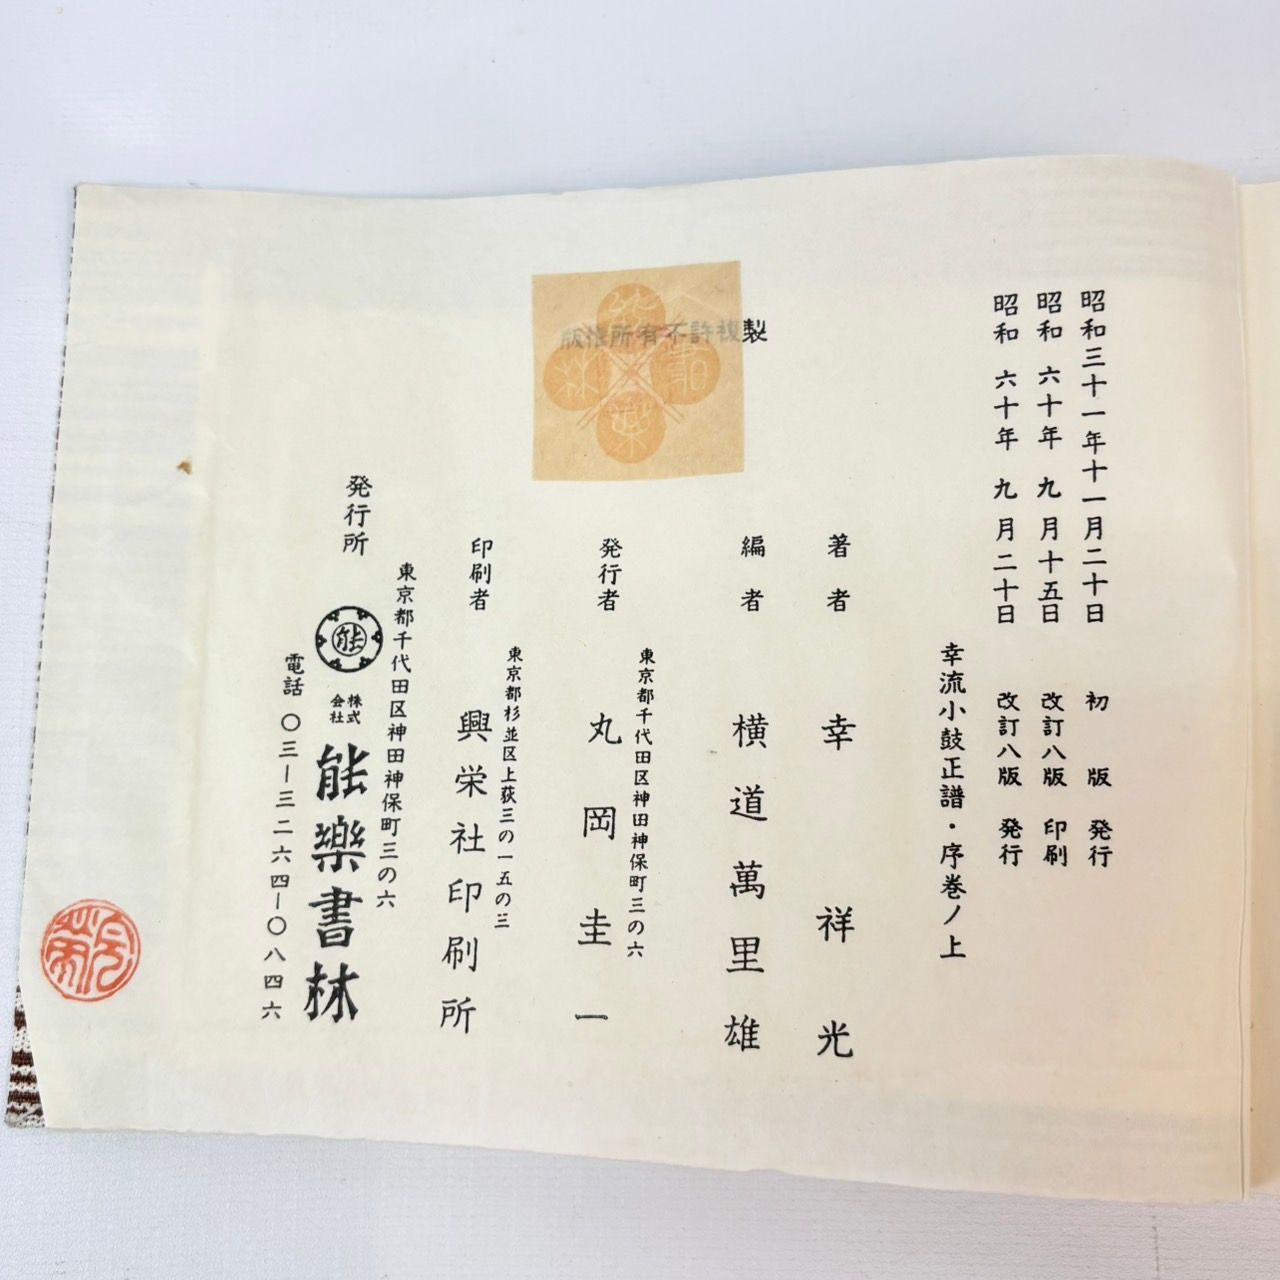 昭和三十一年十一月二十日 初版 発行
昭和 六十年 九 月十五日 改訂八版 印刷
昭和 六十年 九 月二十日 改訂八版 発行
幸流小鼓正譜・序巻ノ上
著者 幸祥光
編者 横道萬里雄
版権所有不許複製
東京都千代田区神田神保町三の六
発行者 丸岡圭一
東京都杉並区上荻三の一五の三
印刷者 興栄社印刷所
東京都千代田区神田神保町三の六
発行所 能 株式会社 能樂書林
電話 〇三ー三二六四ー〇八四六